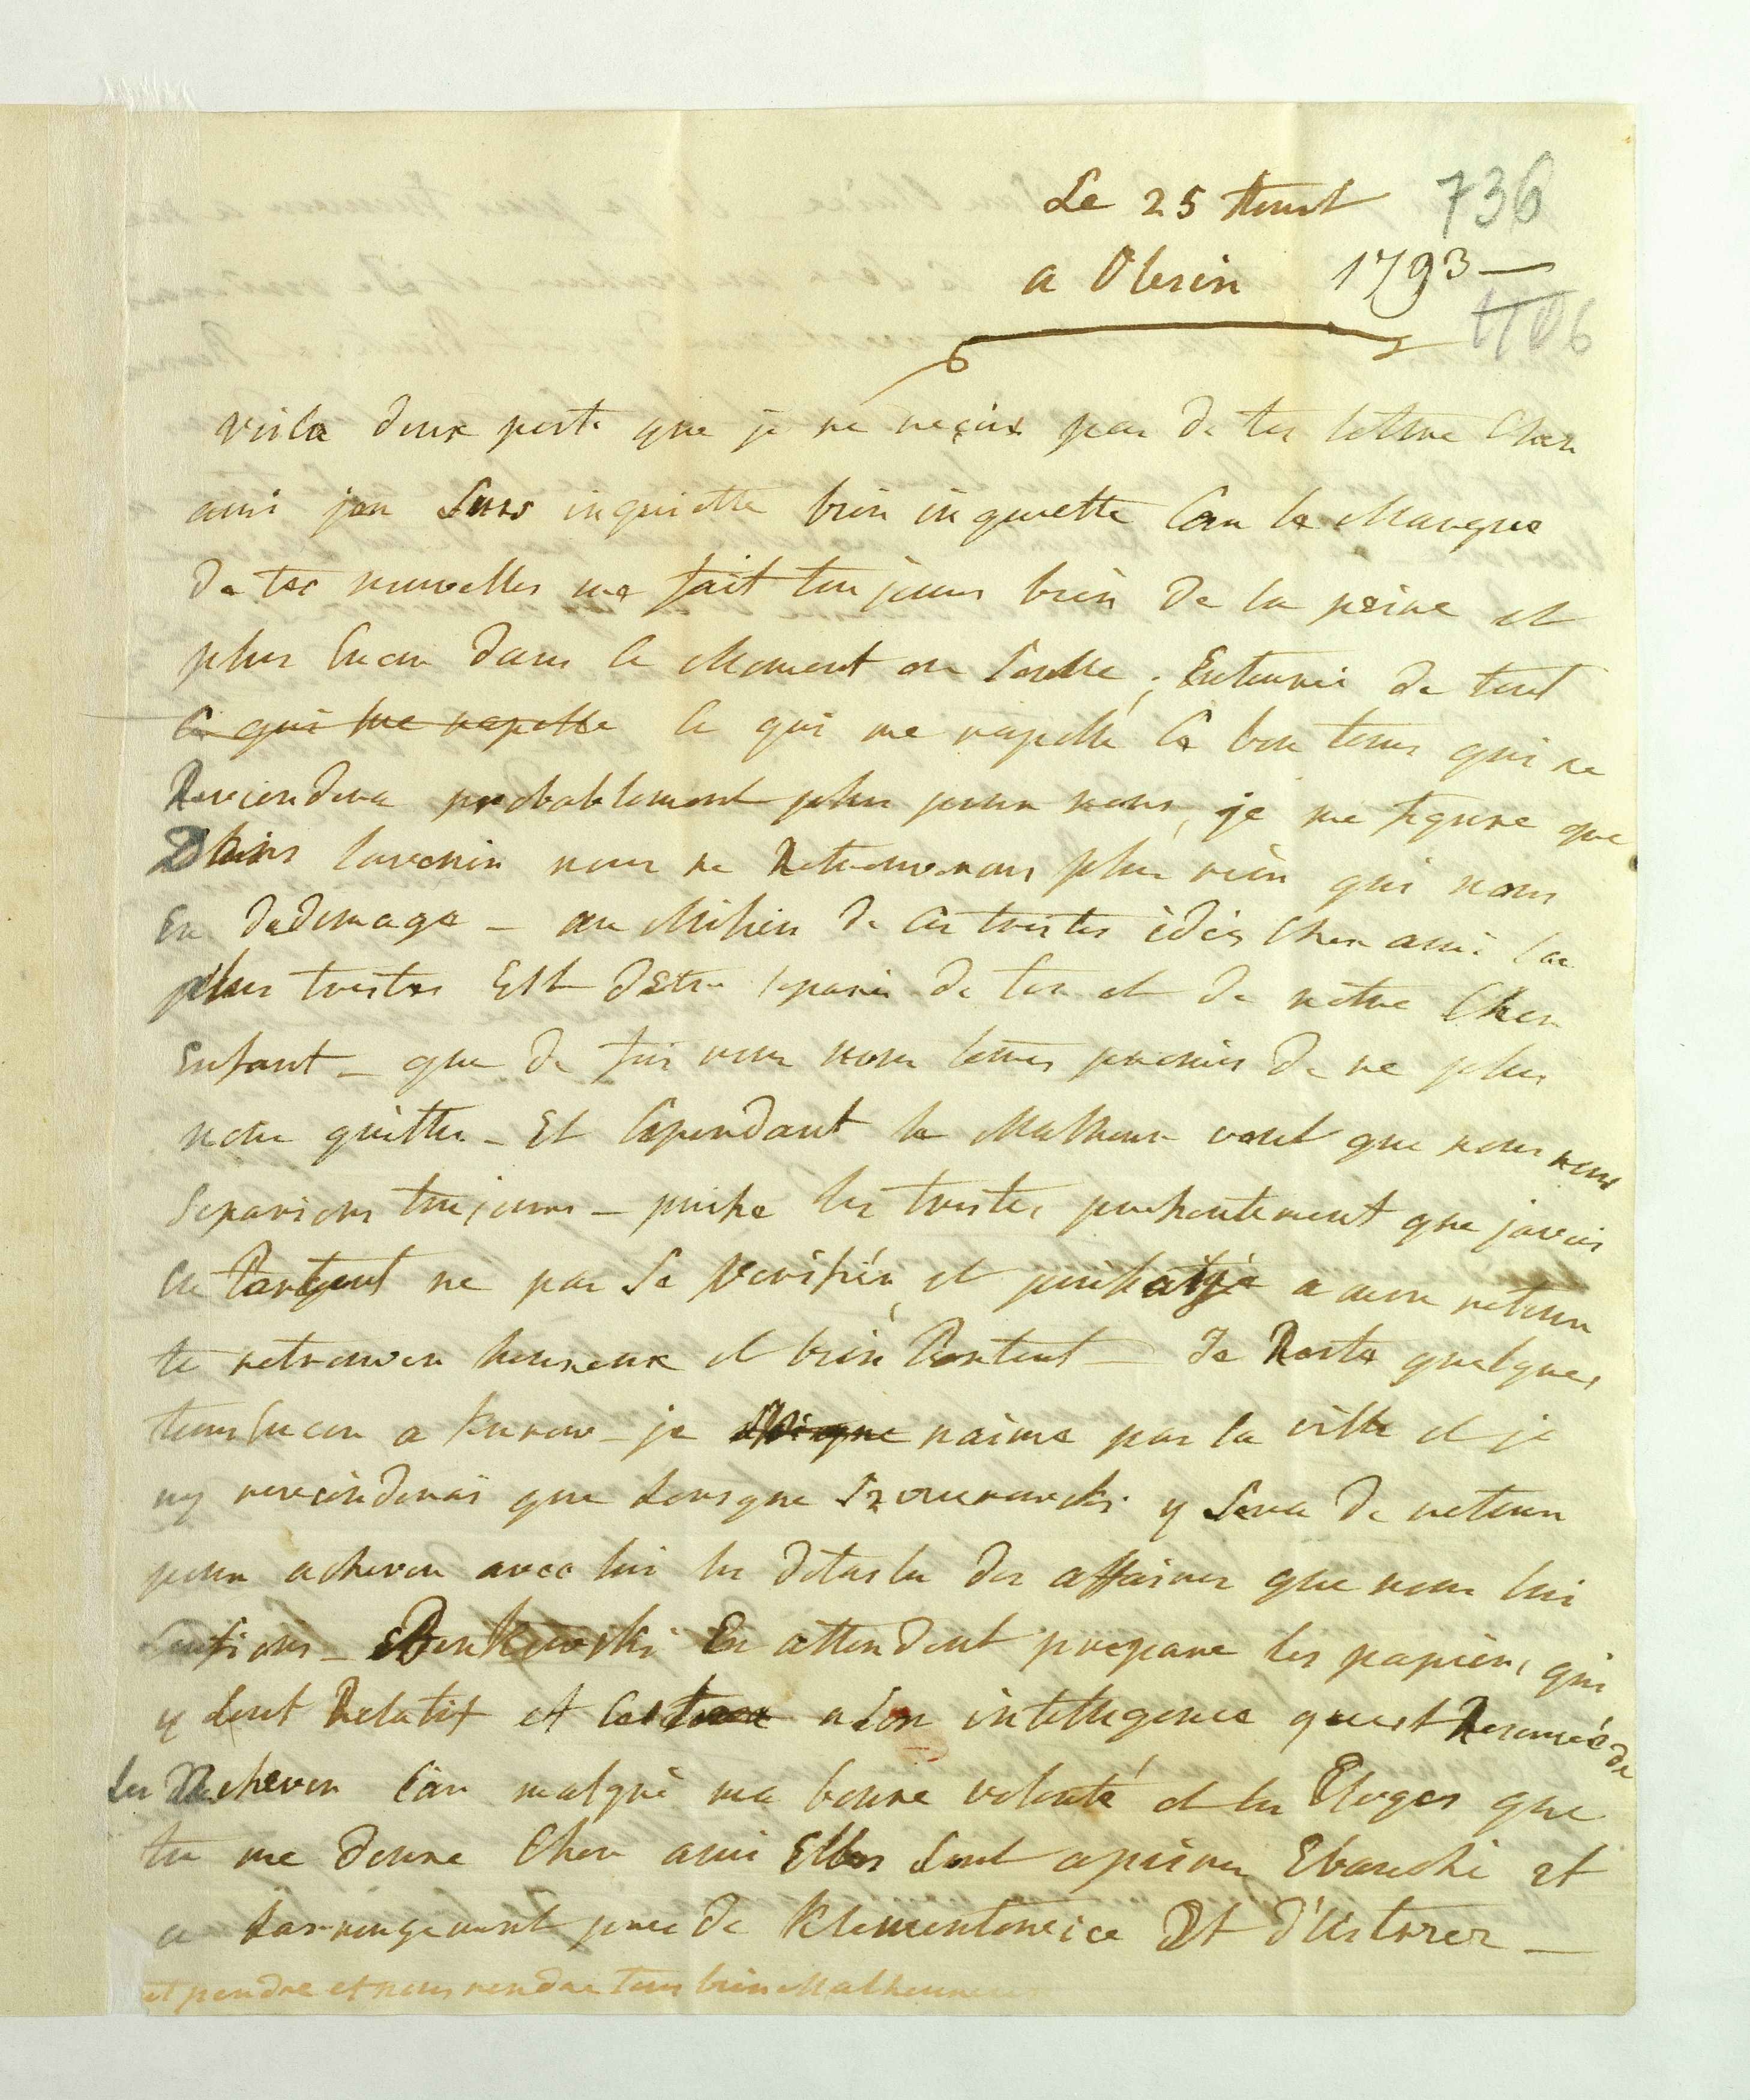 Le 25 Aoust 736
a Olesin 1793 —
1106
voila deux poste que je ne reçois pas de tes lettre Cher
ami jen suis inquiette bien inquiette Car le Manque
de tes nouvelles me fait toujours bien de la peine et
plus encor dans ce Moment ou seulle, Entourée de tout
ce qui me rapelle ce qui me rapelle ce bon tems qui ne
Reviendera probablement plus pour nous, je me figure que
Dans lavenir nous ne Retrouverons plus rien qui nous
En dedomage — au Milieu de ces tristes idées Cher ami la
plus tristes Est d'Etre separée de toi et de nôtre Cher
Enfant — que de fois nous nous somes promis de ne plus
nous quitter — Et Cependant le Malheur veut que nous nous
separions toujours — puisse les tristes pressentement que javais
en Partant ne pas se verifier, et puissai-je a mon retour
te retrouver heureux et bien Content Je Reste quelques
tems encor a Kurow — je naime pas la ville et je
ny revienderai que Lorsque y sera de retour
pour achever avec lui les détails des affaires que nous lui
En attendent prepare les papiers qui
y sont Relatif et a son intelligence quest Reservée de
les Achever Car malgré ma bonne volonté et les Eloges que
tu me donne Cher ami Elles sont apeines Ebauché et
ce darrengement pres de Klementowice Et d'Ustrzez —
et perdre et nous rendre tous bien Malheureux